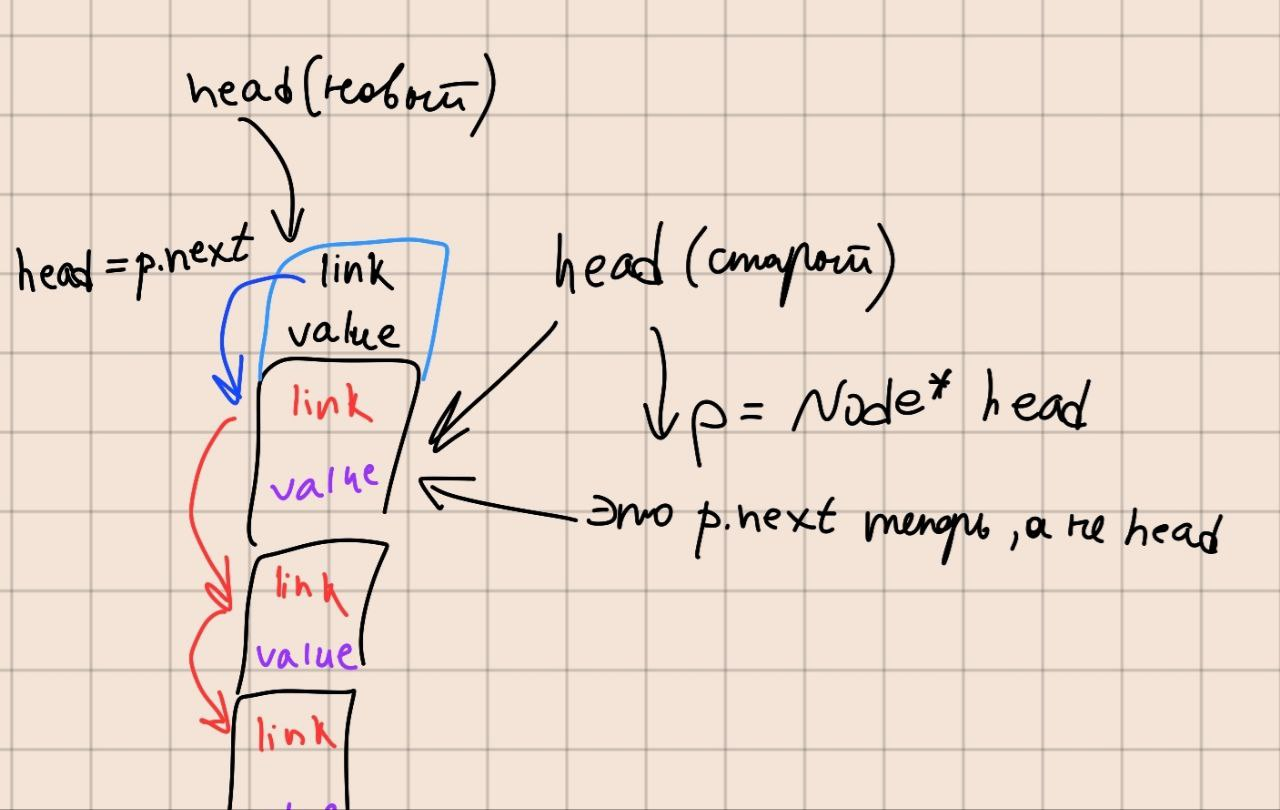 head (новый)
head = p.next
link
value
head (старый)
link
value
p = Node* head
Это p.next теперь, а не head
link
value
link